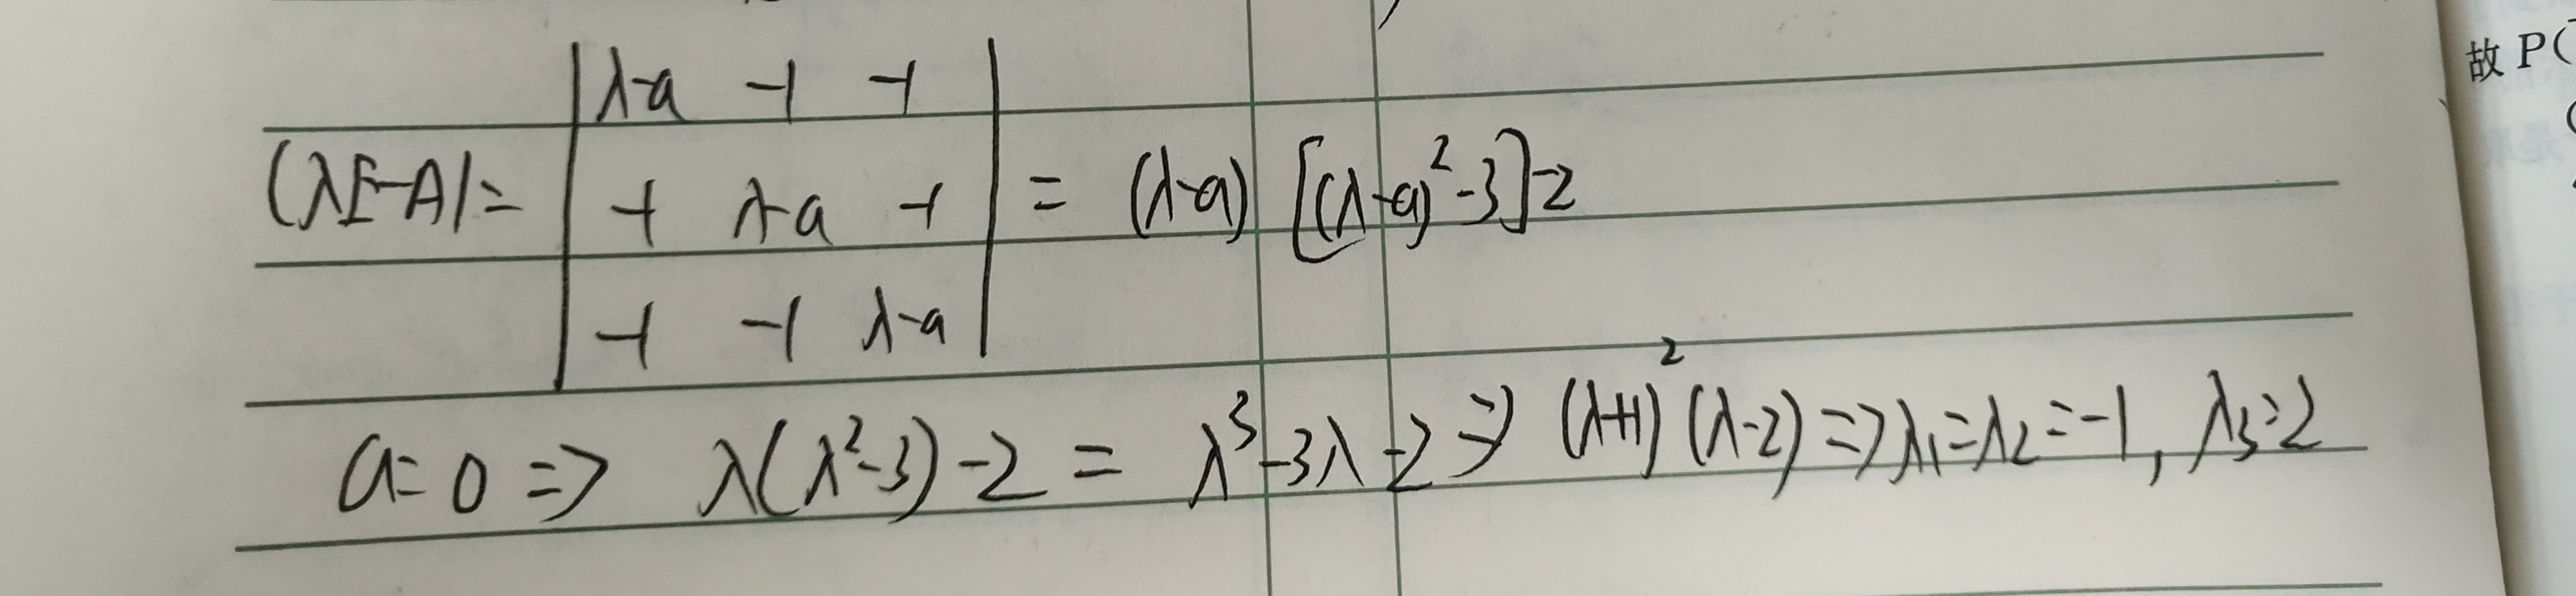 |λE-A|= | λ-a -1 -1 |
| -1 λ-a -1 | = (λ-a) [(λ-a)²-3]-2
| -1 -1 λ-a |
a=0 => λ(λ²-3)-2 = λ³-3λ-2 => (λ+1)²(λ-2) => λ₁=λ₂=-1, λ₃=2
故 P(